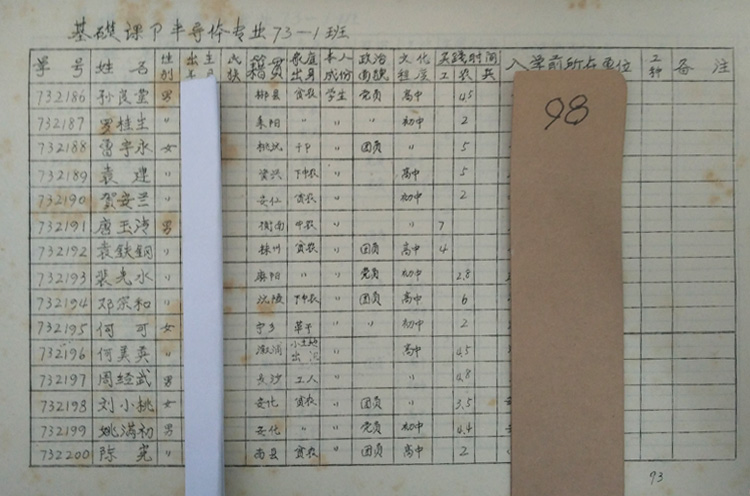 基礎课 半导体专业73-1班
学号 姓名 性别 出生 民族 籍贯 家庭出身 本人成份 政治面貌 文化程度 实践时间 工 农 兵 入学前所在单位 工种 备注
732186 孙良堂 男 郴县 贫农 学生 党员 高中 4.5
732187 罗桂生 〃 耒阳 〃 〃 〃 初中 2
732188 曹宇永 女 干部 〃 团员 〃 5
732189 袁建 〃 资兴 下中农 〃 高中 5
732190 贺安兰 〃 安仁 贫农 〃 初中 2
732191 唐玉涛 男 衡南 中农 〃 〃 7
732192 袁铁钢 〃 株州 贫农 〃 团员 高中 4
732193 裴光水 麻阳 〃 〃 党员 初中 2.8
732194 邓宗和 〃 沅陵 下中农 〃 团员 高中 6
732195 何可 女 宁乡 革干 〃 〃 初中 2
732196 何美英 〃 溆浦 小土地出租 〃 高中 4.5
732197 周经武 男 长沙 工人 〃 〃 4.8
732198 刘小桃 女 安化 贫农 〃 团员 〃 3.5
732199 姚满初 男 安化 〃 〃 党员 初中 4.4
732200 陈 〃 南县 贫农 〃 团员 高中 2
98
93